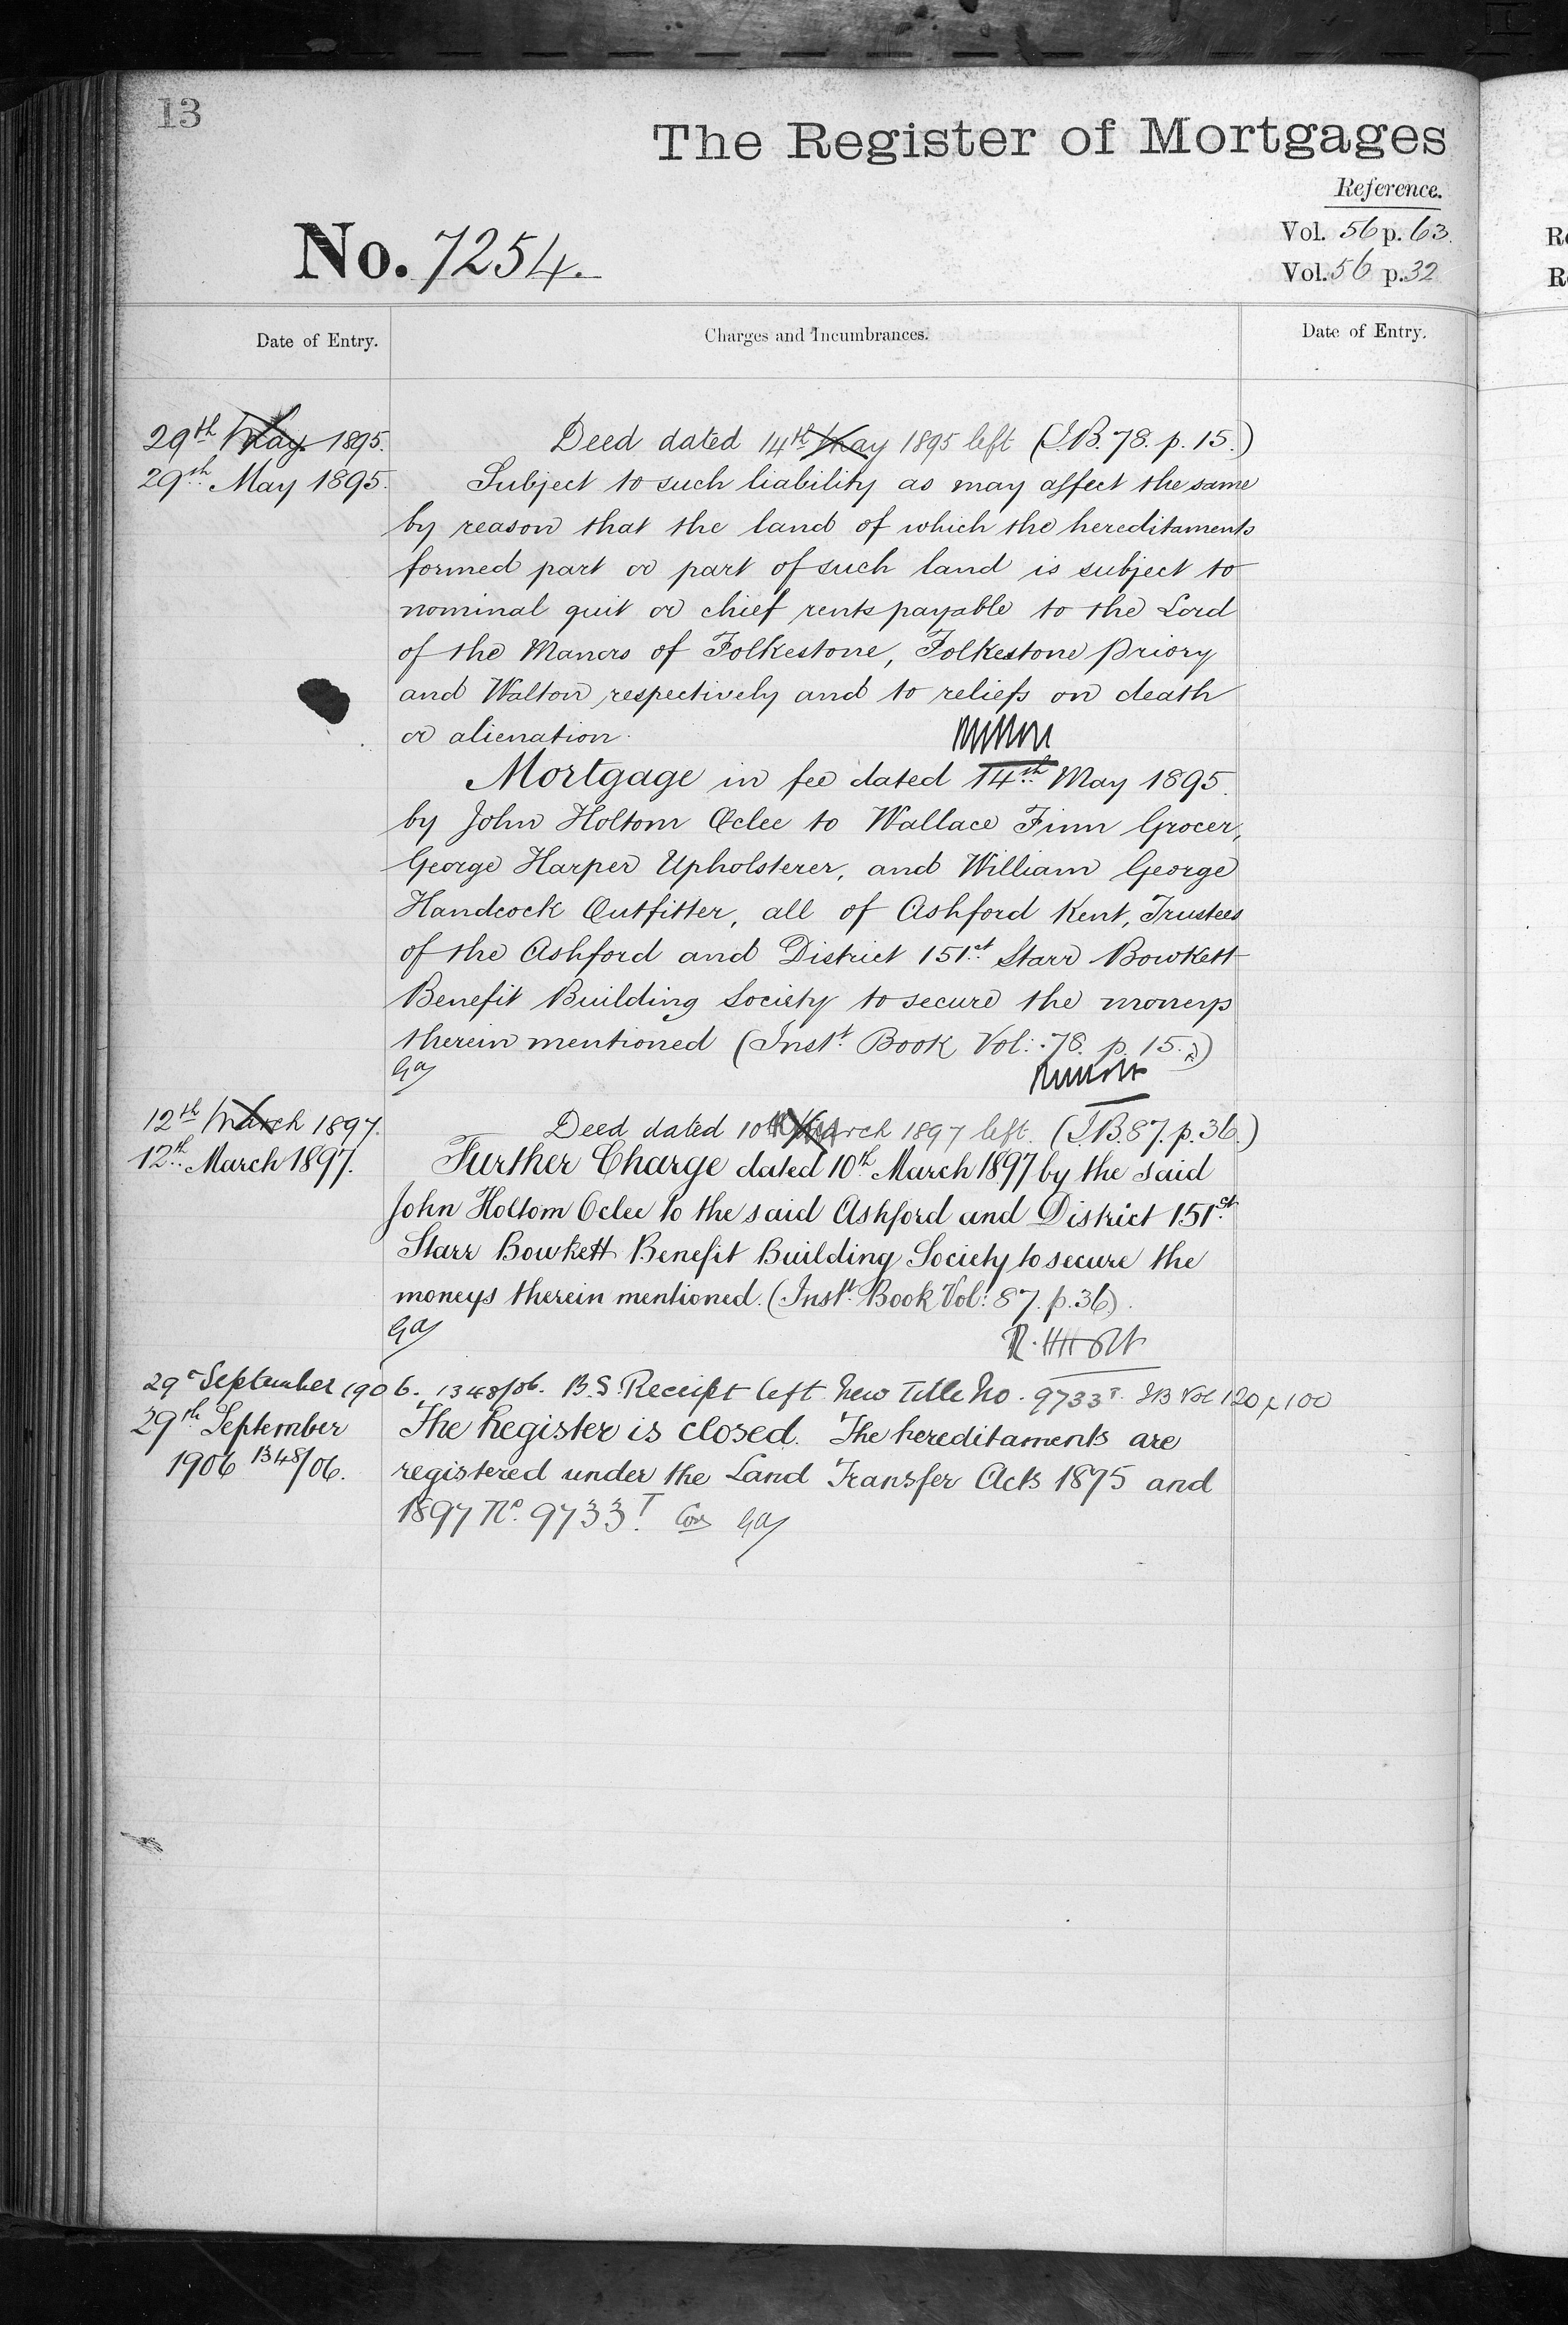 13
The Register of Mortgages
Reference.
Vol. 56 p. 63.
No. 7254.
Vol. 56 p. 32
Date of Entry.
Charges and Incumbrances.
Date of Entry.
29th May 1895. Deed dated 14th May 1895 left (I.B. 78. p. 15.)
29th May 1895. Subject to such liability as may affect the same
by reason that the land of which the hereditaments
formed part or part of such land is subject to
nominal quit or chief rents payable to the Lord
of the Manors of Folkestone, Folkestone Priory
and Walton respectively and to reliefs on death
or alienation.
Mortgage in fee dated 14th May 1895.
by John Holtom Oclee to Wallace Finn Grocer,
George Harper Upholsterer, and William George
Handcock Outfitter, all of Ashford Kent, Trustees
of the Ashford and District 151st Starr Bowkett
Benefit Building Society to secure the moneys
therein mentioned (Inst. Book Vol: 78. p. 15.)
12th March 1897. Deed dated 10th March 1897 left. (I.B. 87. p. 36.)
12th March 1897. Further Charge dated 10th March 1897 by the said
John Holtom Oclee to the said Ashford and District 151st
Starr Bowkett Benefit Building Society to secure the
moneys therein mentioned. (Inst. Book Vol: 87. p. 36).
29 September 1906. 1348/06. B.S. Receipt left New Title No. 9733T. IB Vol 120 p 100
29th September The Register is closed. The hereditaments are
1906 1348/06. registered under the Land Transfer Acts 1875 and
1897 No. 9733T.